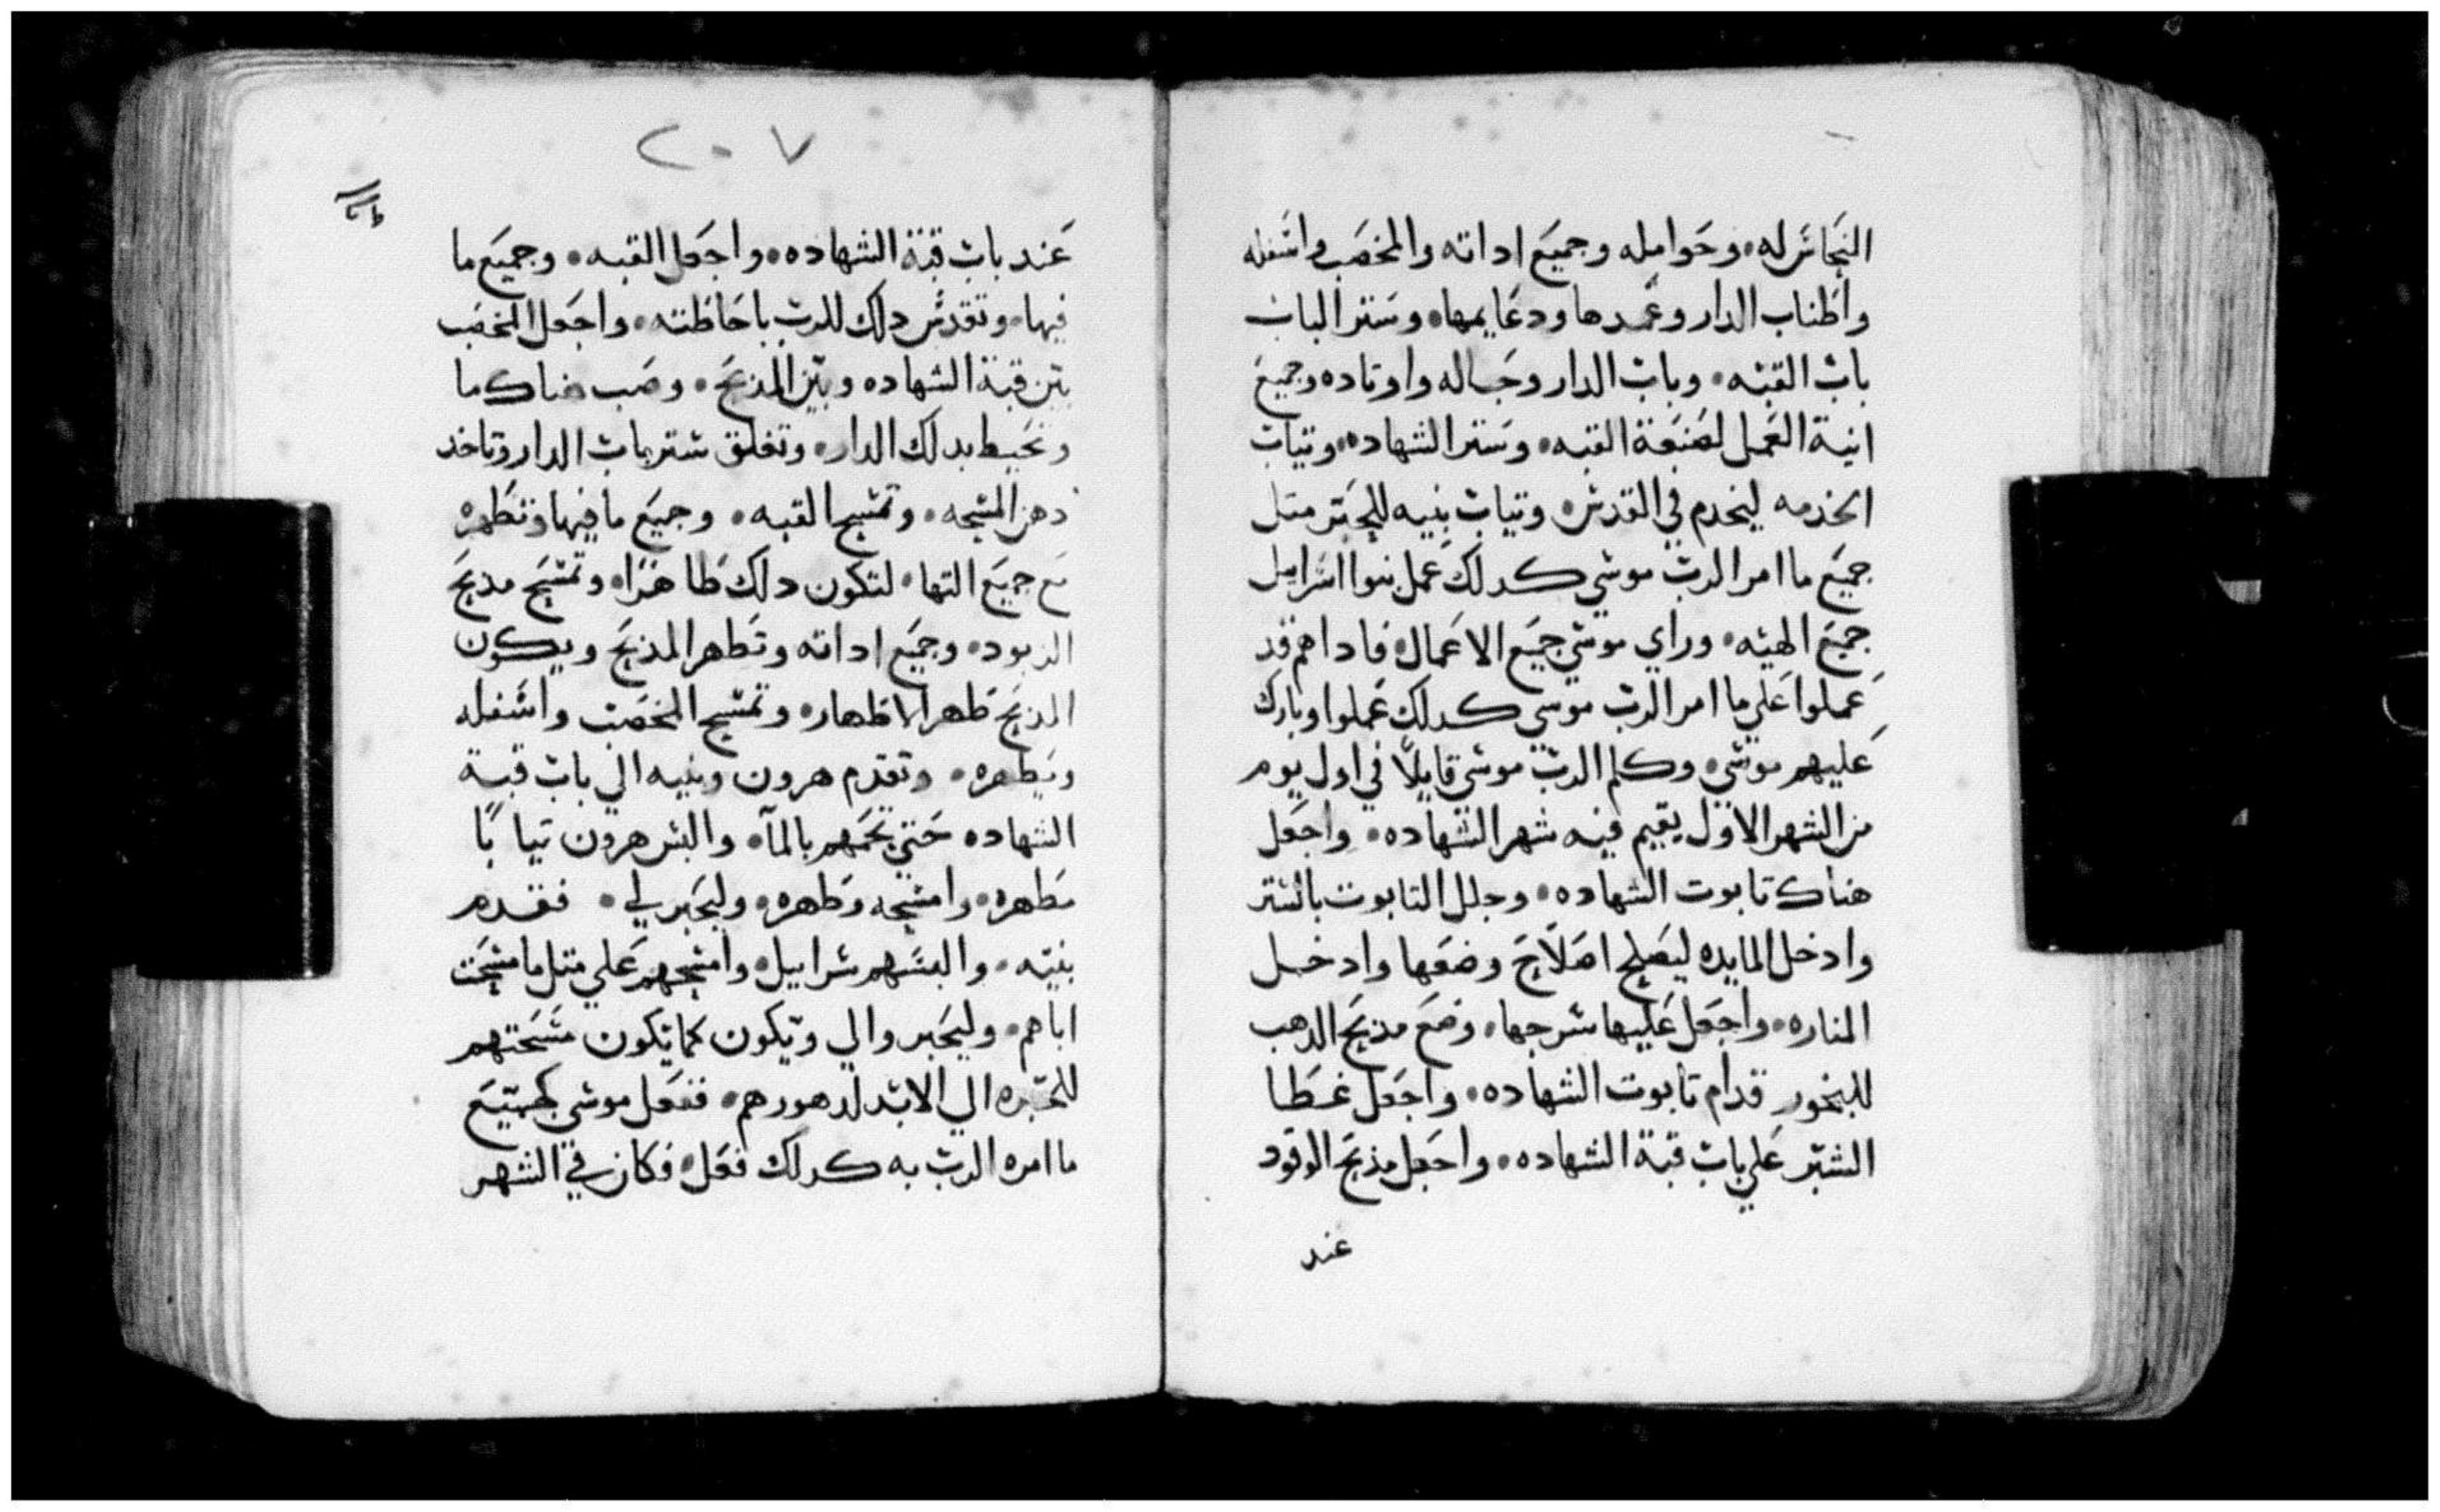 النحاس له • وحوامله وجميع اداته والمخضب واسفله
واطناب الدار وعمدها ودعايمها • وستر الباب
باب القبه • وباب الدار وحباله واوتاده وجميع
انية العمل لصنعة القبه • وستر الشهاده • وتياب
الخدمه ليخدم في القدس • وتياب بنيه للحبر متل
جميع ما امر الرب موسي كدلك عمل بنوا اسرايل
جميع الهيئه • وراي موسي جميع الاعمال فاداهم قد
عملوا علي ما امر الرب موسي كدلك عملوا وبارك
عليهم موسي • وكلم الرب موسي قايلًا في اول يوم
من الشهر الاول يقيم فيه شهر الشهاده • واجعل
هناك تابوت الشهاده • وجلل التابوت بالستر
وادخل المايده ليصلح اصلاح وضعها وادخل
المناره • واجعل عليها سرجها • وضع مذبح الدهب
للبخور قدام تابوت الشهاده • واجعل غطا
الستر علي باب قبة الشهاده • واجعل مذبح الوقود
عند
٢٠٧
عند باب قبة الشهاده • واجعل القبه • وجميع ما
فيها • وتقدس دلك للرب باحاطته • واجعل المخضب
بين قبة الشهاده وبين المذبح • وصب هناك ما
وتحيط بدلك الدار • وتغلق ستر باب الدار وتاخد
دهن المسحه • وتمسح القبه • وجميع ما فيها وتطهره
مع جميع التها • لتكون دلك طاهرًا • وتمسح مدبح
الوقود • وجميع اداته وتطهر المذبح ويكون
المذبح طهر الاطهار • وتمسح المخضب واسفله
ويطهره • وتقدم هرون وبنيه الي باب قبة
الشهاده حتي تحمهم بالمآ • والبس هرون تيابًا
مطهره • وامسحه وطهره • وليحبر لي • فقدم
بنيه • والبسهم سرابيل • وامسحهم علي متل ما مسحت
اباهم • وليحبروا لي ويكون كما تكون مسحتهم
للحبره الي الابد لدهورهم • ففعل موسي كجميع
ما امره الرب به كدلك فعل • فكان في الشهر